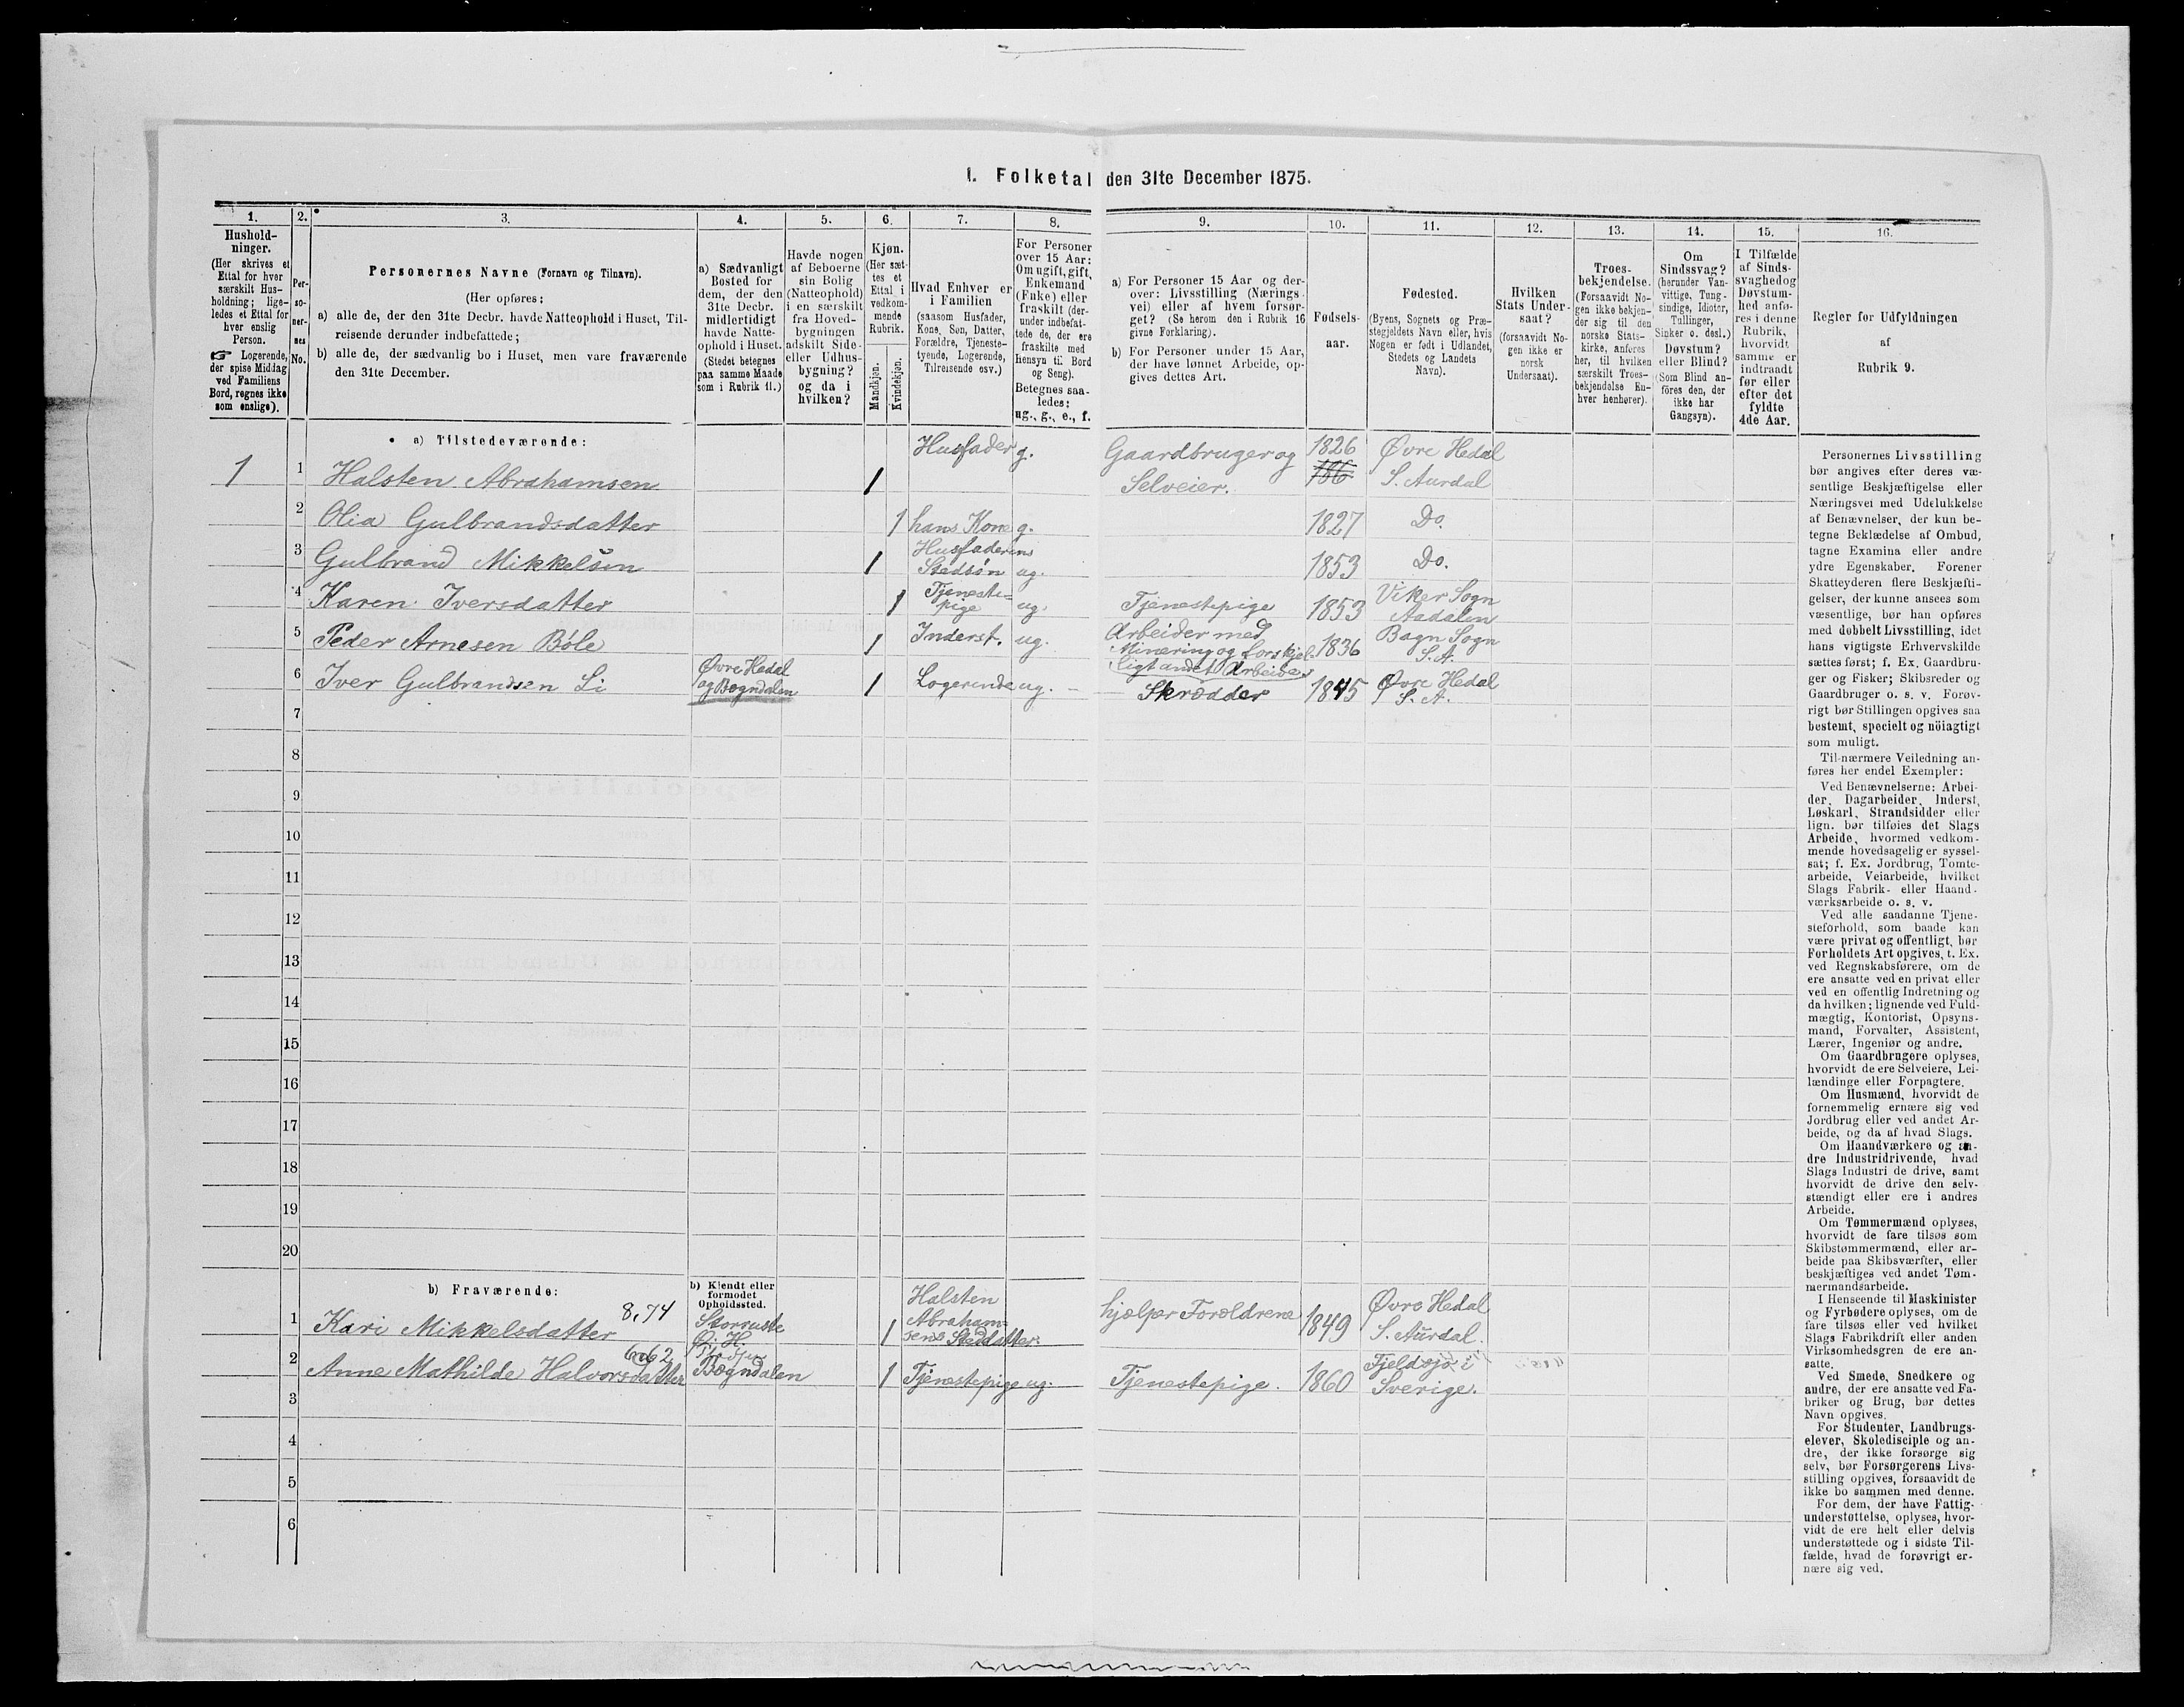 1. Folketal den 31te December 1875.
1.
2.
3.
4.
5.
6.
7.
8.
9.
10.
11.
12.
13.
14.
15.
16.
Hushold-
ninger.
(Her skrives et
Ettal for hver
særskilt Hus-
holdning; lige-
ledes et Ettal for
hver enslig
Person.
☞ Logerende,
der spise Middag
ved Familiens
Bord, regnes ikke
som enslige).
Per-
so-
ner-
nes
No.
Personernes Navne (Fornavn og Tilnavn).
(Her opføres:
a) alle de, der den 31te Decbr. havde Natteophold i Huset, Til-
reisende derunder indbefattede;
b) alle de, der sædvanlig bo i Huset, men vare fraværende
den 31te December.
a) Sædvanligt
Bosted for
dem, der den
31te Decbr.
midlertidigt
havde Natte-
ophold i Huset.
(Stedet betegnes
paa samme Maade
som i Rubrik 11.)
Havde nogen
af Beboerne
sin Bolig
(Natteophold)
i en særskilt
fra Hoved-
bygningen
adskilt Side-
eller Udhus-
bygning?
og da i
hvilken?
Kjøn.
(Her sæt-
tes et
Ettal i
vedkom-
mende
Rubrik.
Mandkjøn.
Kvindekjøn.
Hvad Enhver er
i Familien
(saasom Husfader,
Kone, Søn, Datter,
Forældre, Tjeneste-
tyende, Logerende,
Tilreisende osv.)
For Personer
over 15 Aar:
Om ugift, gift,
Enkemand
(Enke) eller
fraskilt (der-
under indbefat-
tede de, der ere
fraskilte med
Hensyn til Bord
og Seng).
Betegnes saa-
ledes:
ug., g., e., f.
a) For Personer 15 Aar og der-
over: Livsstilling (Nærings-
vei) eller af hvem forsør-
get? (Se herom den i Rubrik 16
givne Forklaring).
b) For Personer under 15 Aar,
der have lønnet Arbeide, op-
gives dettes Art.
Fødsels-
aar.
Fødested.
(Byens, Sognets og Præ-
stegjeldets Navn eller, hvis
Nogen er født i Udlandet,
Stedets og Landets
Navn).
Hvilken
Stats Under-
saat?
(forsaavidt No-
gen ikke er
norsk
Undersaat).
Troes-
bekjendelse.
(Forsaavidt No-
gen ikke bekjen-
der sig til den
norske Stats-
kirke, anføres
her, til hvilken
særskilt Troes-
bekjendelse En-
hver henhører).
Om
Sindssvag?
(herunder Van-
vittige, Tung-
sindige, Idioter,
Tullinger,
Sinker o. desl.)
Døvstum?
eller Blind?
(Som Blind an-
føres den, der
ikke har
Gangsyn).
I Tilfælde
af Sinds-
svaghed og
Døvstum-
hed anfø-
res i denne
Rubrik,
hvorvidt
samme er
indtraadt
før eller
efter det
fyldte
4de Aar.
Regler for Udfyldningen
af
Rubrik 9.
a) Tilstedeværende:
1 1 Halsten Abrahamsen 1 Husfader g. Gaardbruger og Selveier. 1826 186 Øvre Hedal S. Aurdal
2 Olia Gulbrandsdatter 1 hans Kone g. 1827 Do.
3 Gulbrand Mikkelsen 1 Husfaderens Stedsøn ug. 1853 Do.
4 Karen Iversdatter 1 Tjeneste-pige ug. Tjenestepige 1853 Viker Sogn Aadalen
5 Peder Arnesen Bøle 1 Inderst. ug. Arbeider med Minering og forskjel-ligt andet Arbeide 1836 Bagn Sogn S. A.
6 Iver Gulbrandsen Li Øvre Hedal og Bagndalen 1 Logerende ug. Skrædder 1845 Øvre Hedal S. A.
7
8
9
10
11
12
13
14
15
16
17
18
19
20
b) Fraværende:
b) Kjendt eller
formodet
Opholdssted.
1 Kari Mikkelsdatter 8,74 Storruste Ø. H. 1 Halsten Abraham-sens Steddatter. hjælper Forældrene 1849 Øvre Hedal S. Aurdal.
2 Anne Mathilde Halvorsdatter Bagndalen 1 Tjenestepige ug. Tjenestepige. 1860 Fjeldsjø i Sverige.
3
4
5
6
Personernes Livsstilling
bør angives efter deres væ-
sentlige Beskjæftigelse eller
Næringsvei med Udelukkelse
af Benævnelser, der kun be-
tegne Beklædelse af Ombud,
tagne Examina eller andre
ydre Egenskaber. Forener
Skatteyderen flere Beskjæfti-
gelser, der kunne ansees som
væsentlige, bør han opføres
med dobbelt Livsstilling, idet
hans vigtigste Erhvervskilde
sættes først; f. Ex. Gaardbru-
ger og Fisker; Skibsreder og
Gaardbruger o. s. v. Forøv-
rigt bør Stillingen opgives saa
bestemt, specielt og nöiagtigt
som muligt.
Til nærmere Veiledning an-
føres her endel Exempler:
Ved Benævnelserne: Arbei-
der, Dagarbeider, Inderst,
Løskarl, Strandsidder eller
lign. bør tilføies det Slags
Arbeide, hvormed vedkom-
mende hovedsagelig er syssel-
sat; f. Ex. Jordbrug, Tomte-
arbeide, Veiarbeide, hvilket
Slags Fabrik- eller Haand-
værksarbeide o. s. v.
Ved alle saadanne Tjene-
steforhold, som baade kan
være privat og offentligt, bør
Forholdets Art opgives, t. Ex.
ved Regnskabsførere, om de
ere ansatte ved en privat eller
ved en offentlig Indretning og
da hvilken; lignende ved Fuld-
mægtig, Kontorist, Opsyns-
mand, Forvalter, Assistent,
Lærer, Ingeniør og andre.
Om Gaardbrugere oplyses,
hvorvidt de ere Selveiere, Lei-
lændinge eller Forpagtere.
Om Husmænd, hvorvidt de
fornemmelig ernære sig ved
Jordbrug eller ved andet Ar-
beide, og da af hvad Slags.
Om Haandværkere og an-
dre Industridrivende, hvad
Slags Industri de drive, samt
hvorvidt de drive den selv-
stændigt eller ere i andres
Arbeide.
Om Tømmermænd oplyses,
hvorvidt de fare tilsøs som
Skibstømmermænd, eller ar-
beide paa Skibsværfter, eller
beskjæftiges ved andet Tøm-
mermandsarbeide.
I Henseende til Maskinister
og Fyrbødere oplyses, om de
fare tilsøs eller ved hvilket
Slags Fabrikdrift eller anden
Virksomhedsgren de ere an-
satte.
Ved Smede, Snedkere og
andre, der ere ansatte ved Fa-
briker og Brug, bør dettes
Navn opgives.
For Studenter, Landbrugs-
elever, Skoledisciple og an-
dre, der ikke forsørge sig
selv, bør Forsørgerens Livs-
stilling opgives, forsaavidt de
ikke bo sammen med denne.
For dem, der have Fattig-
understøttelse, oplyses, hvor-
vidt de ere helt eller delvis
understøttede og i sidste Til-
fælde, hvad de forøvrigt er-
nære sig ved.